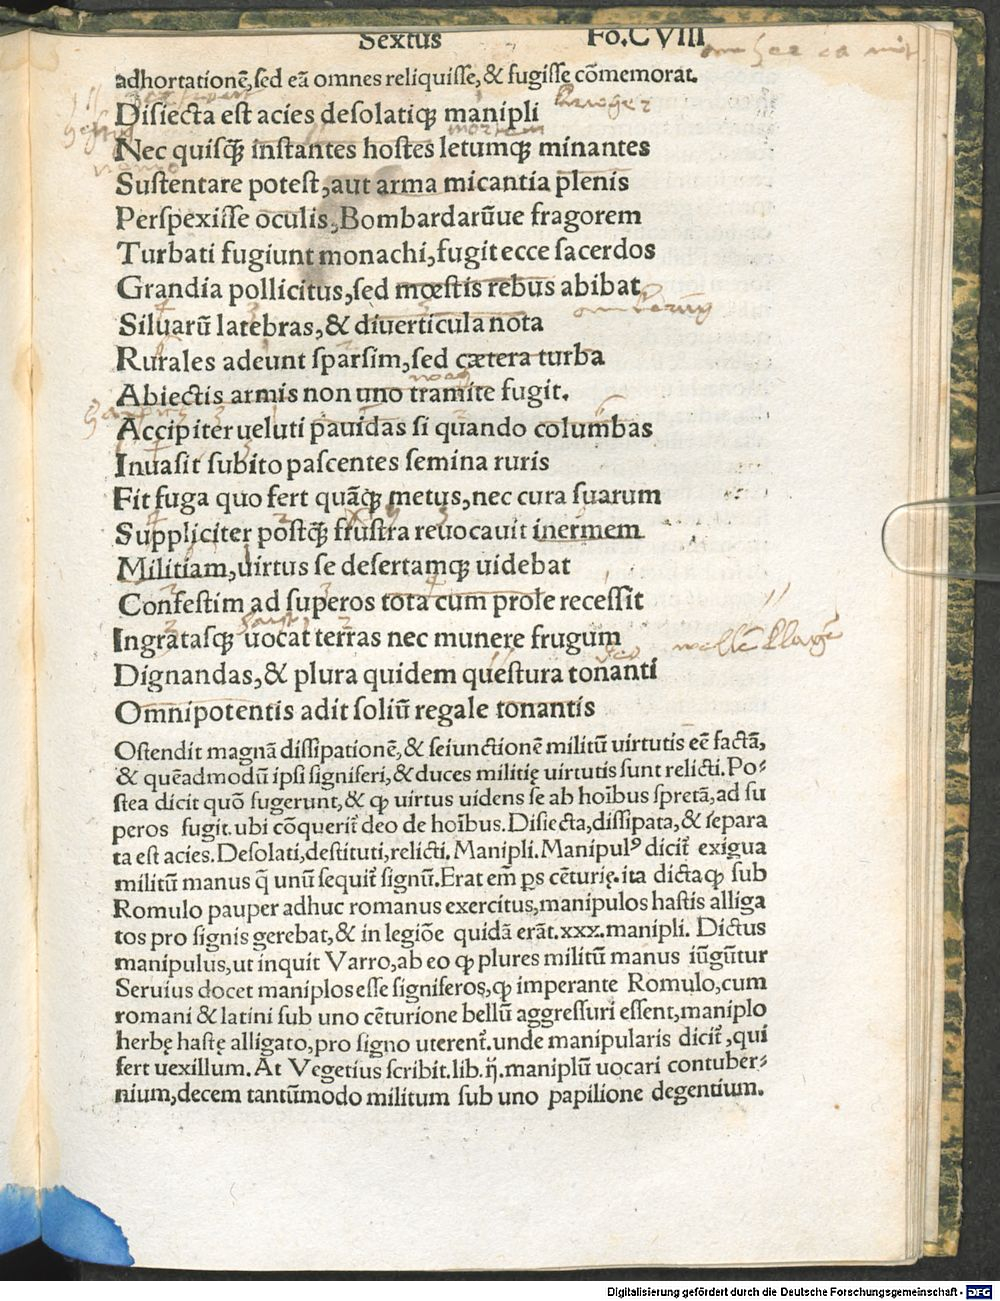 Sextus Fo.CVIII
adhortationē,sed eā omnes reliquisse,& fugisse cōmemorat.
Disiecta est acies desolatiq̃ manipli
Nec quisq̃ instantes hostes letumq̃ minantes
Sustentare potest,aut arma micantia plenis
Perspexisse oculis,Bombardarūue fragorem
Turbati fugiunt monachi,fugit ecce sacerdos
Grandia pollicitus,sed mœstis rebus abibat
Siluarū latebras,& diuerticula nota
Rurales adeunt sparsim,sed cætera turba
Abiectis armis non uno tramite fugit.
Accipiter ueluti pauidas si quando columbas
Inuasit subito pascentes semina ruris
Fit fuga quo fert quāq̃ metus,nec cura suarum
Suppliciter postq̃ frustra reuocauit inermem
Militiam,uirtus se desertamq̃ uidebat
Confestim ad superos tota cum prole recessit
Ingratasq̃ uocat terras nec munere frugum
Dignandas,& plura quidem questura tonanti
Omnipotentis adit soliū regale tonantis
Ostendit magnā dissipationē,& seiunctionē militū uirtutis eē factā,
& quēadmodū ipsi signiferi,& duces militię uirtutis sunt relicti.Po⸗
stea dicit quō fugerunt,& ꝙ uirtus uidens se ab hoībus spretā,ad su
peros fugit.ubi cōquerit̃ deo de hoībus.Disiecta,dissipata,& separa
ta est acies.Desolati,destituti,relicti.Manipli.Manipulꝰ dicit̃ exigua
militū manus q̄ unū sequit̃ signū.Erat em̄ ps cēturię.ita dictaꝙ sub
Romulo pauper adhuc romanus exercitus,manipulos hastis alliga
tos pro signis gerebat,& in legiōe quidā erāt.xxx.manipli. Dictus
manipulus,ut inquit Varro,ab eo ꝙ plures militū manus iūgūtur
Seruius docet maniplos esse signiferos,ꝙ imperante Romulo,cum
romani & latini sub uno cēturione bellū aggressuri essent,maniplo
herbę hastę alligato,pro signo uterent̃.unde manipularis dicit̃,qui
fert uexillum.At Vegetius scribit.lib.ij.maniplū uocari contuber⸗
nium,decem tantūmodo militum sub uno papilione degentium.
Digitalisierung gefördert durch die Deutsche Forschungsgemeinschaft - DFG